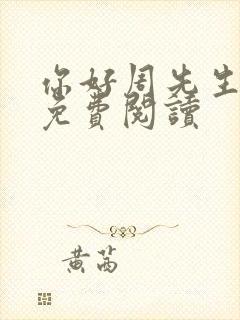 你好周先生
免費閱讀
黃茜